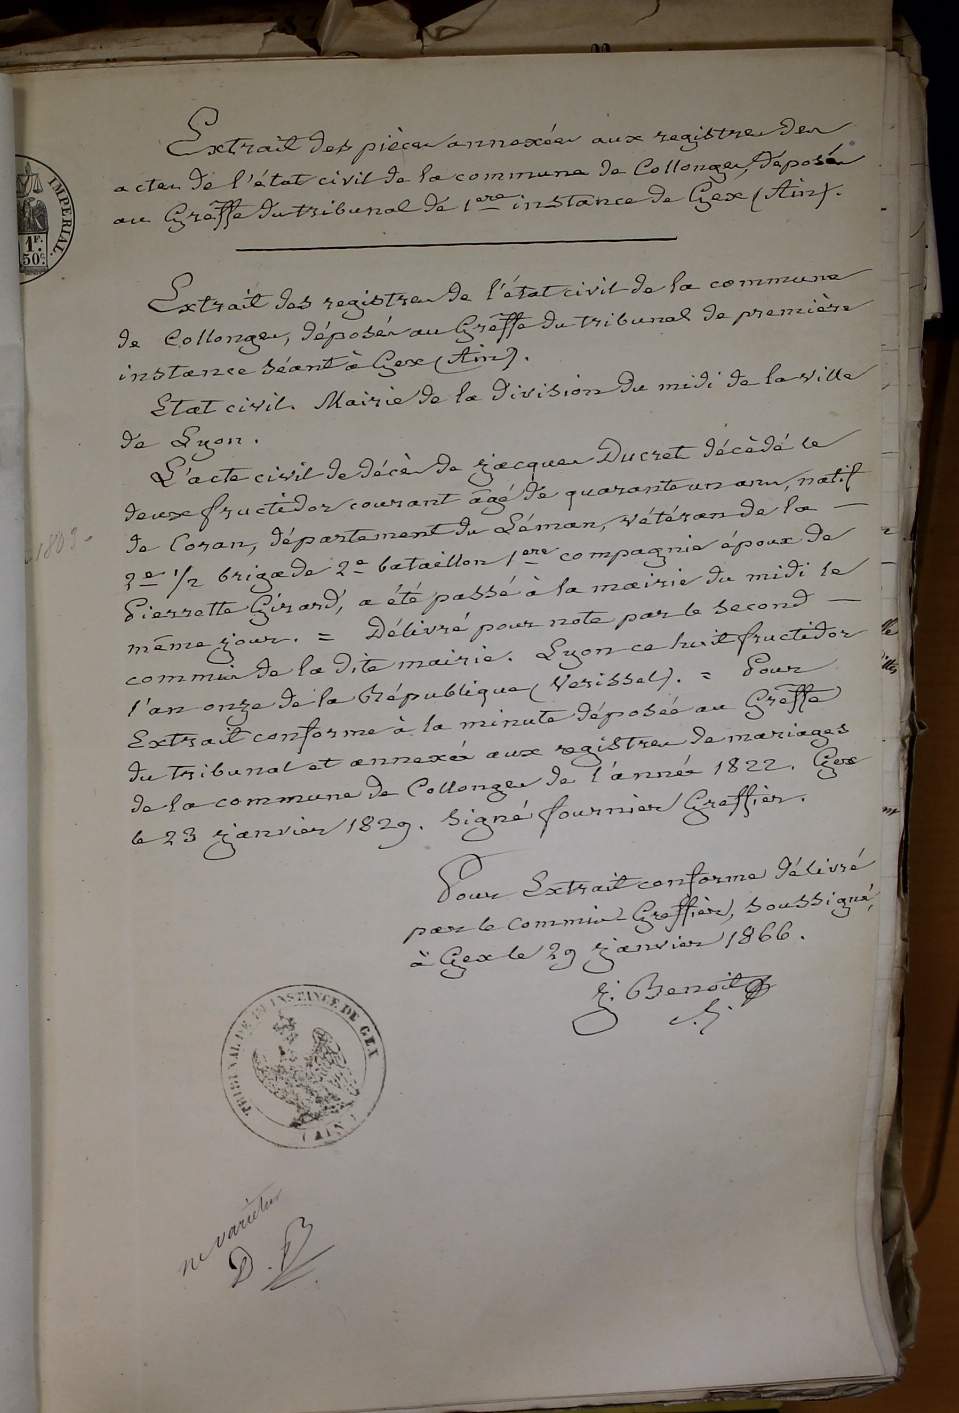 IMPERIAL.
1F.
50c.
Extrait des pièces annexées aux registres des
actes de l'état civil de la commune de Collonges, déposés
au Greffe du tribunal de 1ere instance de Gex (Ain).
Extrait des registres de l'état civil de la commune
de Collonges, déposés au Greffe du tribunal de première
instance séant à Gex (Ain).
Etat civil. Mairie de la division du midi de la ville
de Lyon.
L'acte civil de décès de Jacques Ducret décédé le
deux fructidor courant âgé de quarante un ans, natif
de Coran, département du Léman, vétéran de la —
1803
2e 1/2 brigade 2e bataillon 1ere compagnie époux de
Pierrette Girard, a été passé à la mairie du midi le
même jour. = Délivré pour note par le second —
commis de la dite mairie. Lyon ce huit fructidor
l'an onze de la République (Verissel). = Pour
Extrait conforme à la minute déposée au Greffe
du tribunal et annexée aux registres de mariages
de la commune de Collonges de l'année 1822. Gex
le 23 janvier 1829. Signé fournier Greffier.
Pour Extrait conforme délivré
par le commis-Greffier, soussigné,
à Gex le 29 janvier 1866.
J. Benoit
TRIBUNAL DE 1re INSTANCE DE GEX
(AIN)
ne varietur
D. B